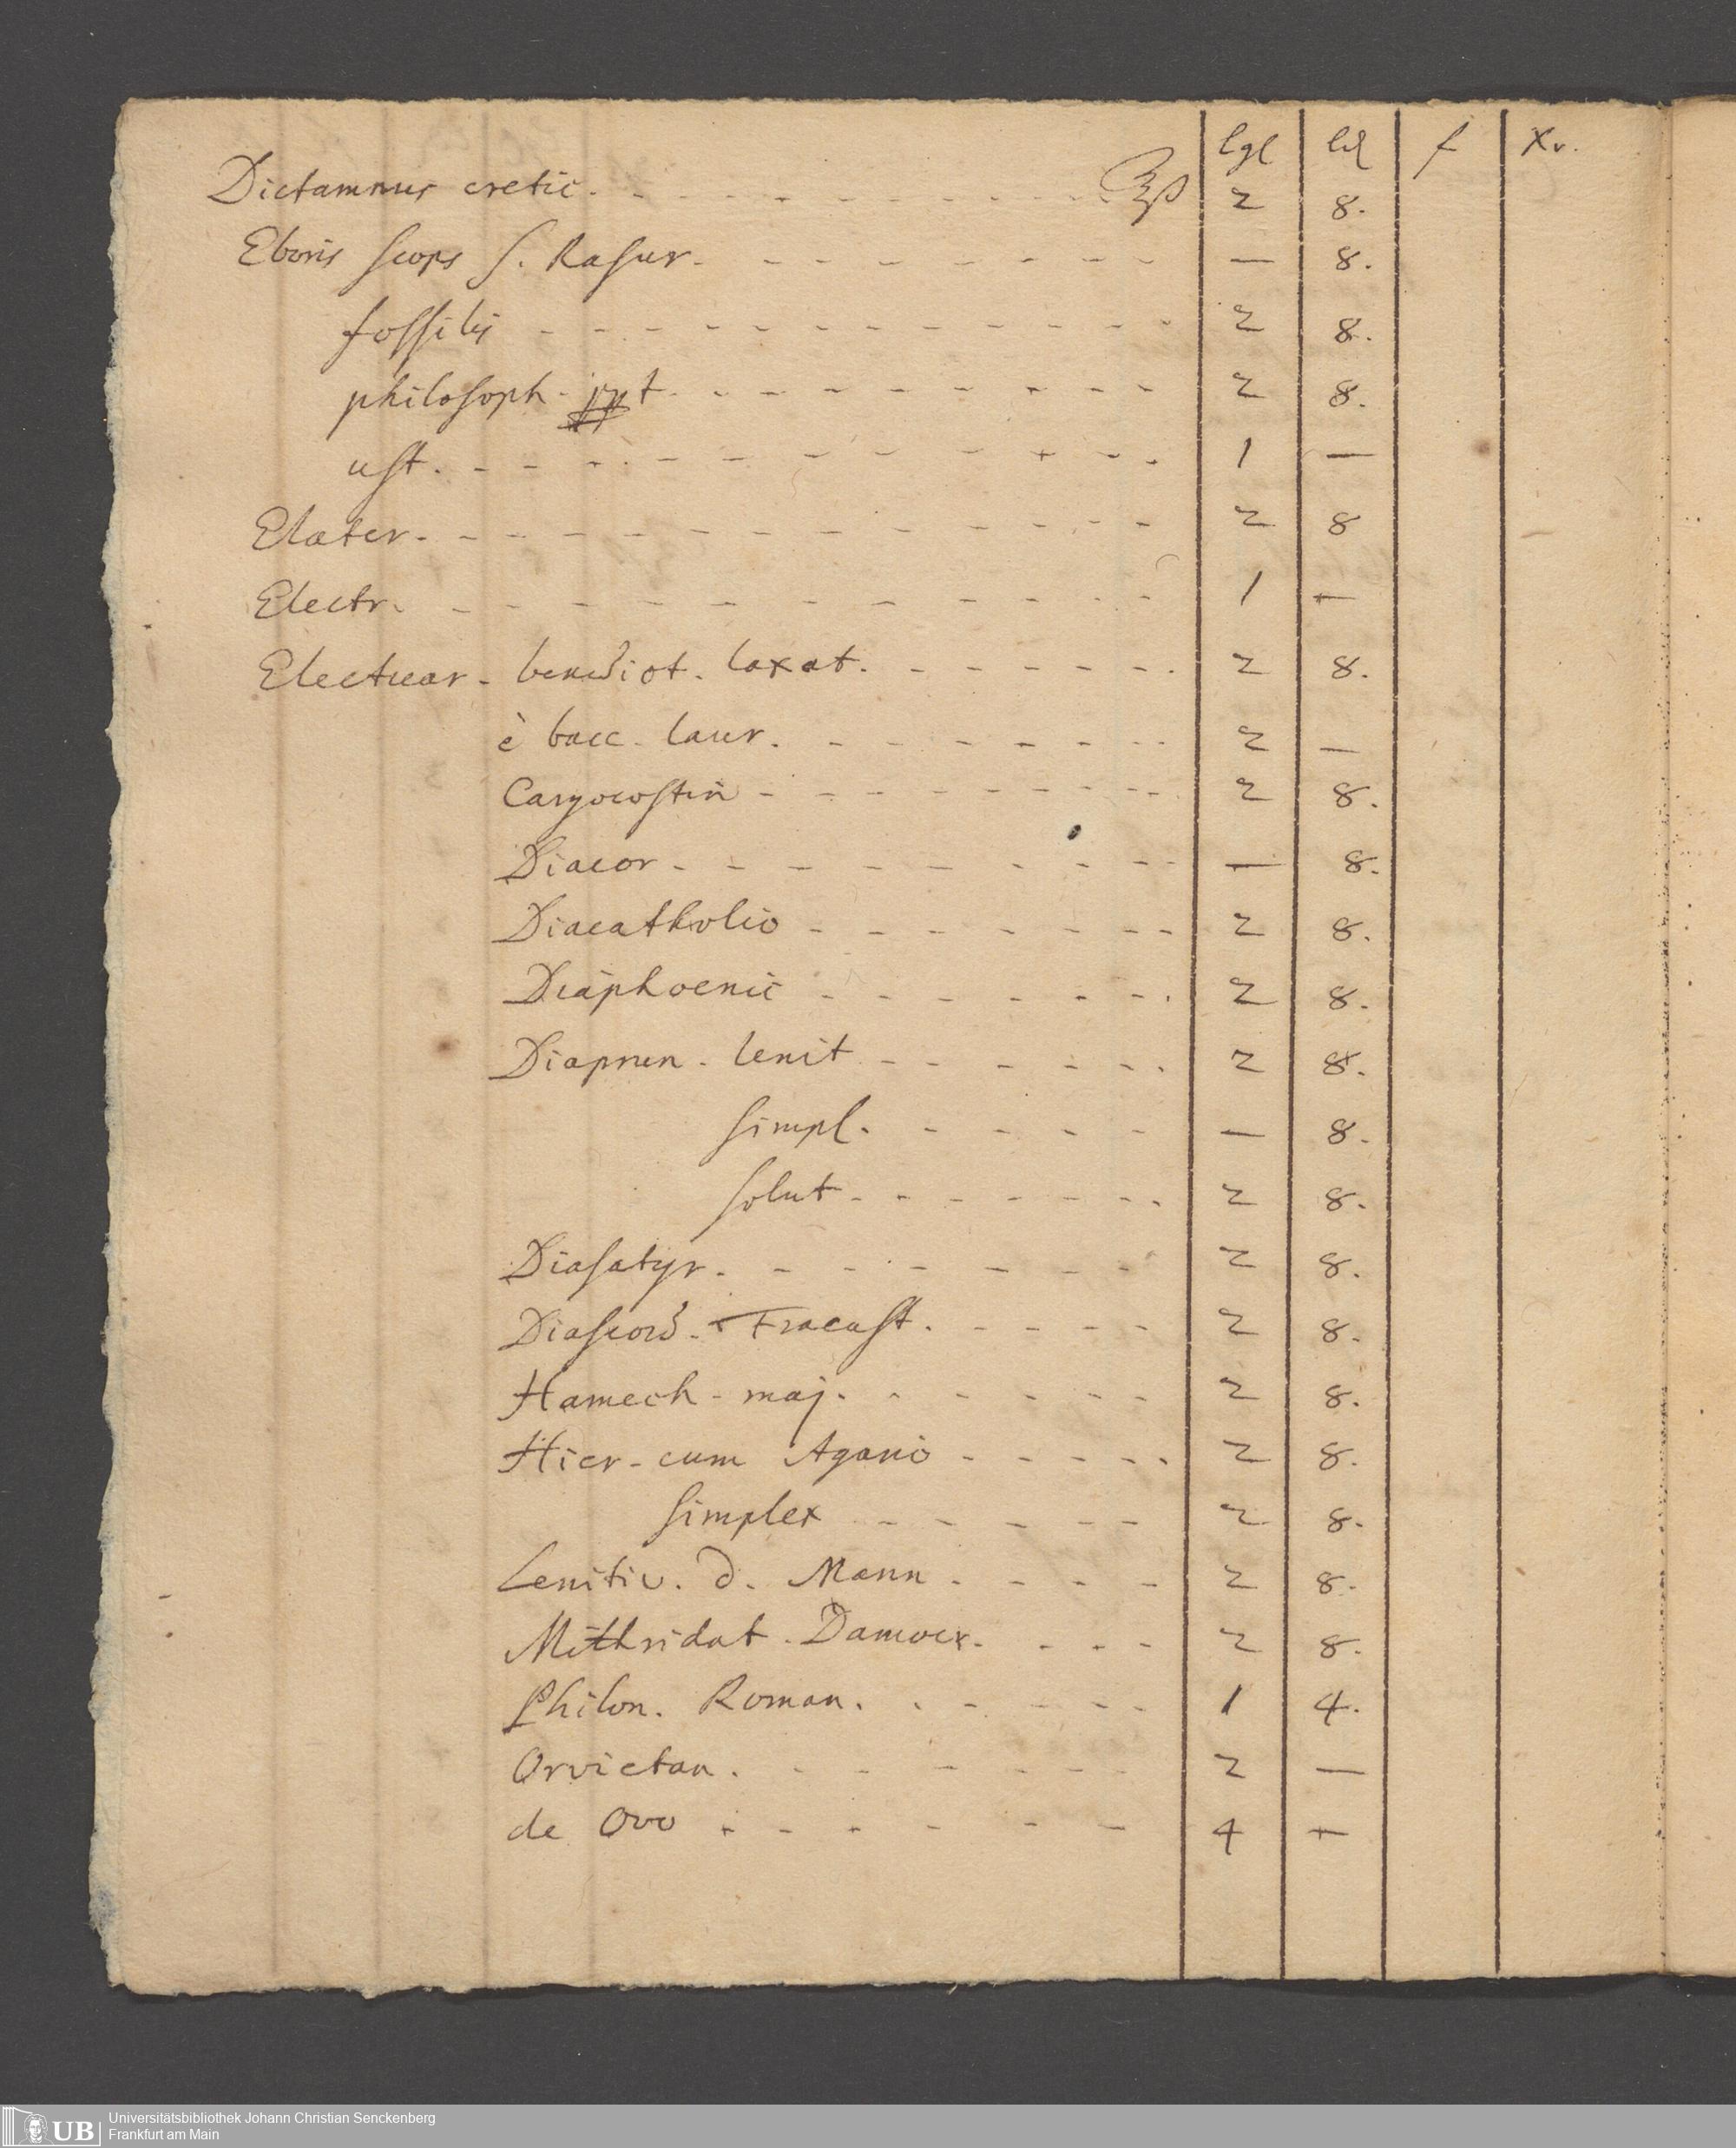 lgl ld f Xr.
Dictamnus cretic. ℥ß 2 8.
Eboris scops s. Rasur. — 8.
fossilis 2 8.
philosoph. ppt 2 8.
ust. 1 —
Elater. 2 8
Electr. 1 —
Electuar. benedict. laxat. 2 8.
è bacc. laur. 2 —
Caryocostin 2 8.
Diacor. — 8.
Diacatholic 2 8.
Diaphoenic 2 8.
Diaprun. lenit 2 8.
simpl. — 8.
solut. 2 8.
Diasatyr. 2 8.
Diascord. Fracast. 2 8.
Hamech. maj. 2 8.
Hier. cum Agaric 2 8.
simplex 2 8.
Lenitiv. d. Mann. 2 8.
Mithridat. Damocr. 2 8.
Philon. Roman. 1 4.
Orvietan. 2 —
de Ovo 4 —
UB Universitätsbibliothek Johann Christian Senckenberg
Frankfurt am Main